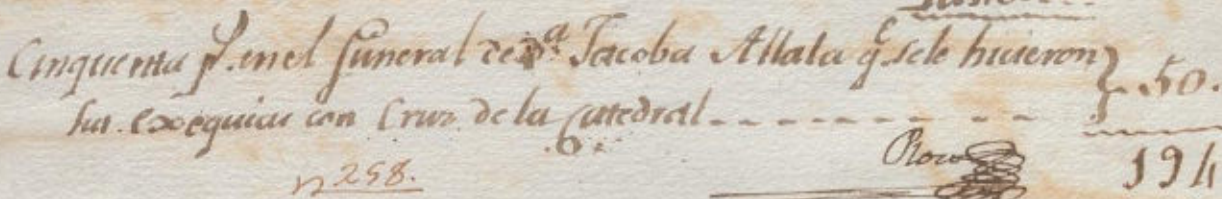 Cinquenta p.s en el funeral de D.a Jacoba Allala q.e se le hicieron } 50.
sus exequias con Cruz de la Catedral - - - - - - - -
194
n 258.